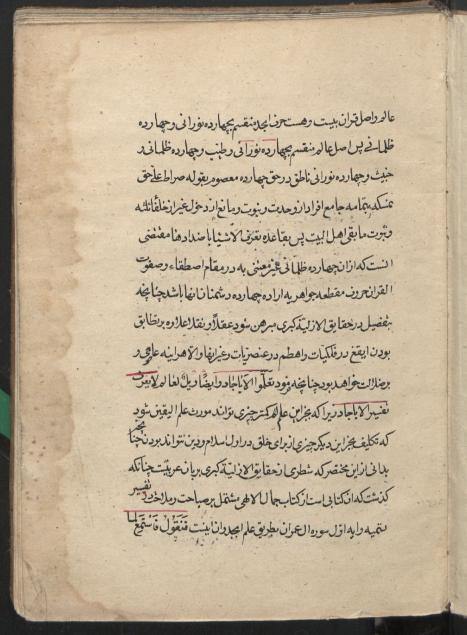 عالم واصل قران بیست وهست حرف ابجد منقسم بچهارده نورانی وچهارده
ظلمانی پس اصل عالم منقسم بچهارده نورانی وطیب وچهارده ظلمانی و
خبیث وچهارده نورانی ناطق در حق چهارده معصوم بقوله صراط علی حق
نمسکه بتمامه جامع افراد از وحدت ونبوت ومانع از دخول غیر از خلفا ثلثه
وثبوت ما بقی اهل البیت پس بقاعده تعرف الاشیا باضدادها مقتضی
انست که ازان چهارده ظلمانی غیر معتنی به در مقام اصطفاء وصفوت
القران حروف مقطعه جواهر به اراده چهارده دشمنان انها باشد چنانچه
بتفصیل در حقایق الازلیة کبری مبرهن شود عقلاً ونقلاً علاوه بر تطابق
بودن در فلکیات در عنصریات وغیرانها والاهرابنه
بر ضدان خواهد بود چنانچه فرمود تعلّموا الاباجاد وایضاً ویلٌ لعالم لا یعرف
تفسیر الاباجاد زیرا که بجز این علم لله کمتر چیزی تواند مورث علم الیقین شود
که تکلیف بجز این دیگر چیزی از برای خلق در اول اسلام ودین نتواند بودن چنانچه
بدانی از این مختصر که شطری از حقایق الازلیة کبری بزبان عربیست چنانکه
گذشت که ان کتابی است از کتاب جمال الالهی مشتمل بر مباحث تفسیر
بسمیه وایه اول سوره ال عمران بطریق علم ابجد وان اینست فَنَقُولُ فَاسْتَمِع لما